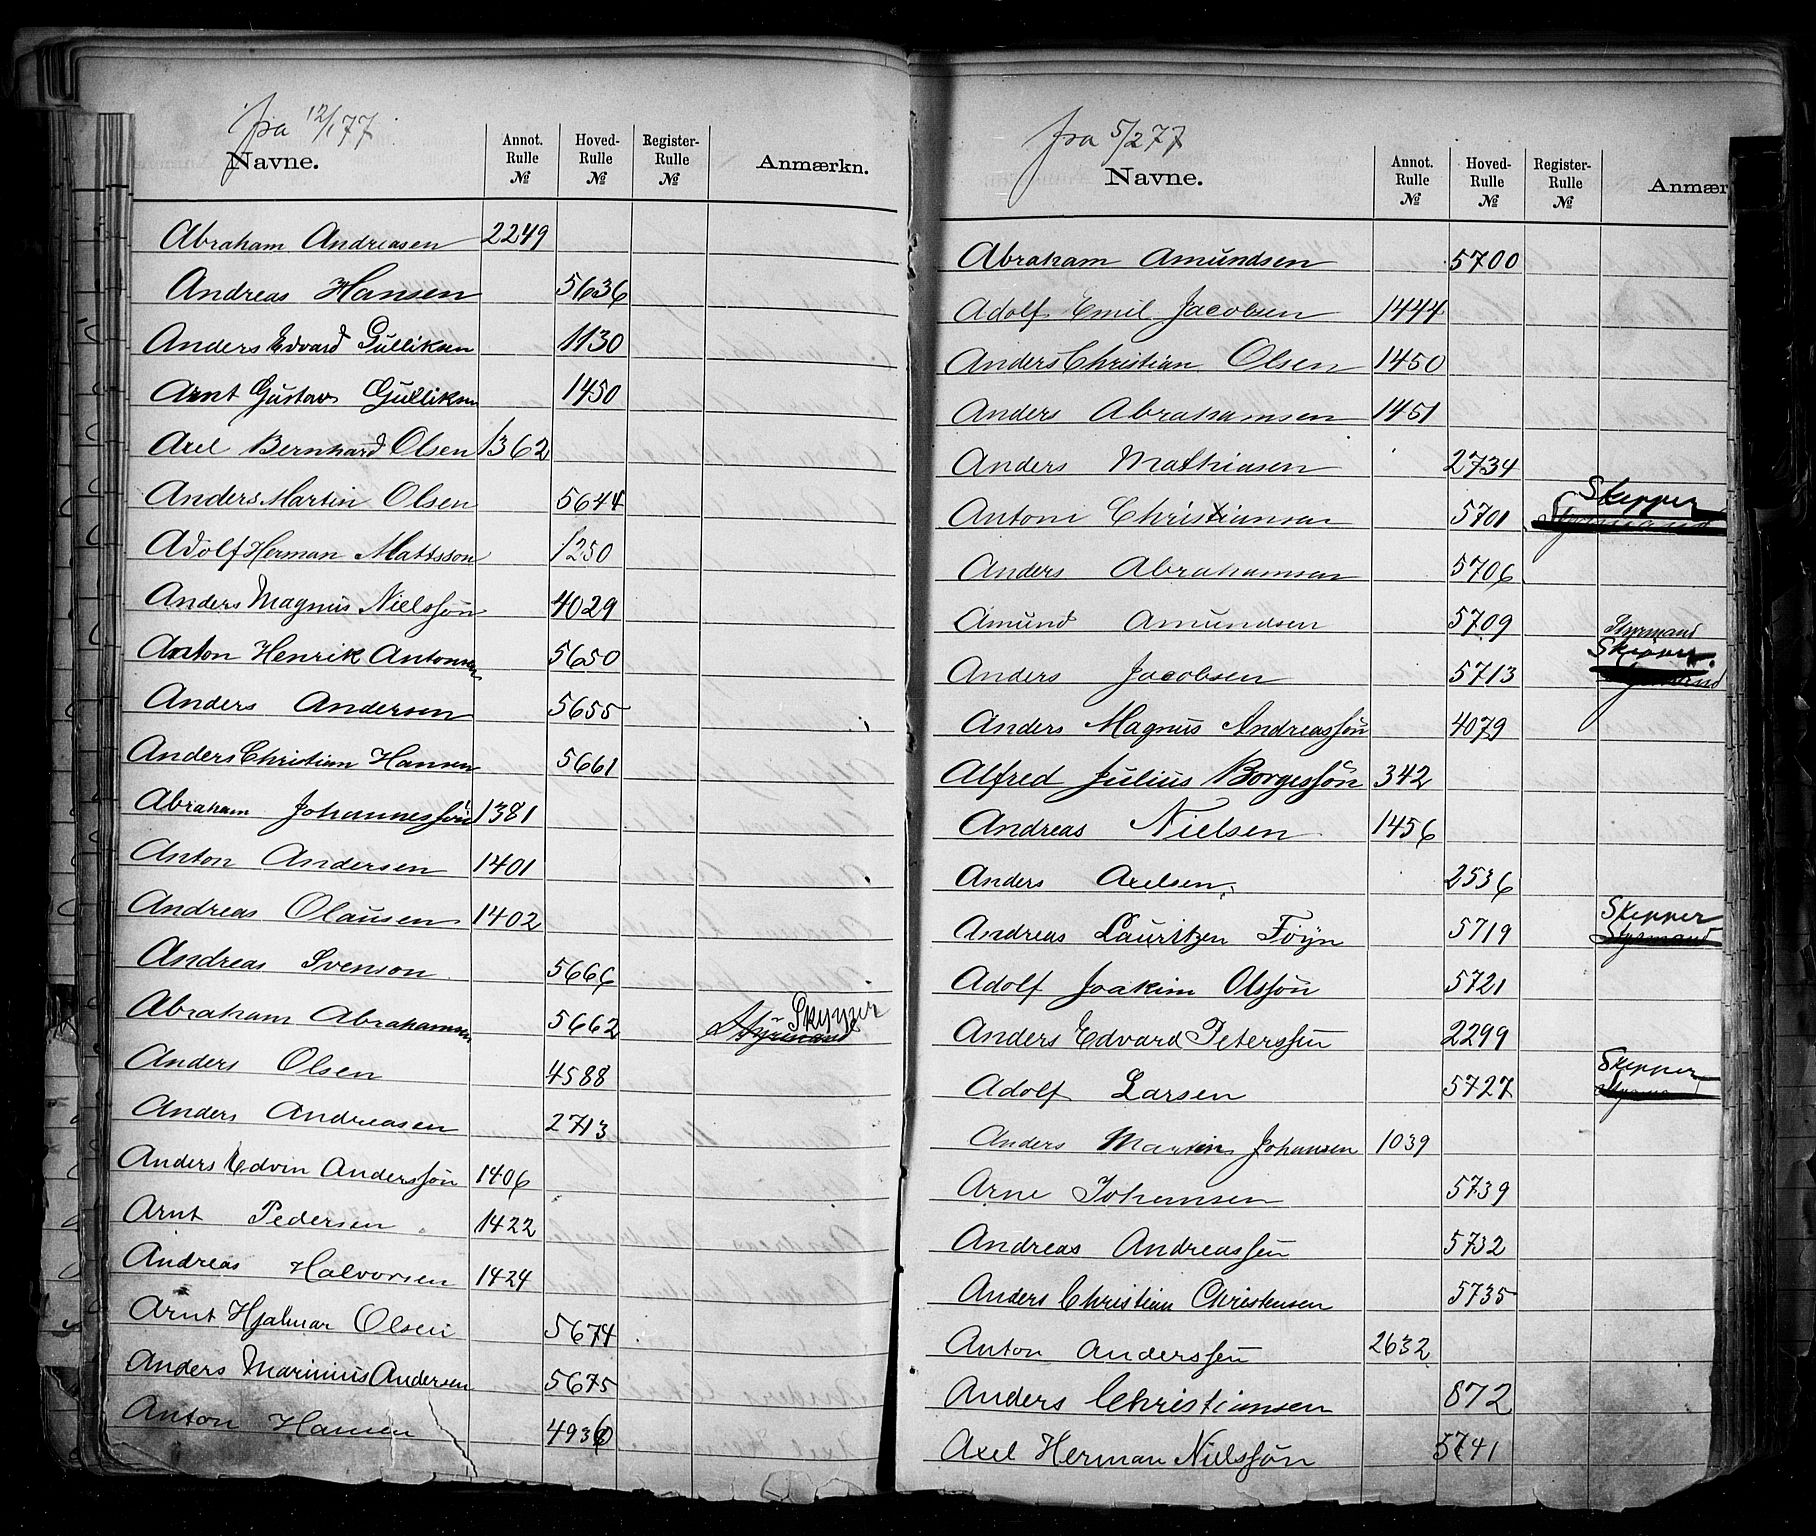 fra 12/1 77
Navne. Annot. Rulle № Hoved-Rulle № Register-Rulle № Anmærkn.
Abraham Andreasen 2249
Andreas Hansen 5636
Anders Edvard Gulliksen 1130
Arnt Gustav Gulliksen 1450
Axel Bernhard Olsen 1362
Anders Martin Olsen 5644
Adolf Herman Mattsson 1250
Anders Magnus Nielssön 4029
Anton Henrik Antonsen 5650
Anders Andersen 5655
Anders Christian Hansen 5661
Abraham Johannessön 1381
Anton Andersen 1401
Andreas Olausen 1402
Andreas Svenson 5666
Abraham Abrahamsen 5662 Styrmand Skipper
Anders Olsen 4588
Anders Andreasen 2713
Anders Edvin Anderssön 1406
Arnt Pedersen 1422
Andreas Halvorsen 1424
Arnt Hjalmar Olsen 5674
Anders Marinius Andersen 5675
Anton Hansen
fra 5/2 77
Navne. Annot. Rulle № Hoved-Rulle № Register-Rulle № Anmær
Abraham Amundsen 5700
Adolf Emil Jacobsen 1444
Anders Christian Olsen 1450
Anders Abrahamsen 1451
Anders Mathiasen 2734
Anton Christiansen 5701 Skipper Styrmand
Anders Abrahamsen 5706
Amund Amundsen 5709 Styrmand
Anders Jacobsen 5713 Skipper Styrmand
Anders Magnus Andreassön 4079
Alfred Julius Borgessön 342
Andreas Nielsen 1456
Anders Axelsen 2536
Andreas Lauritzen Föyn 5719 Skipper Styrmand
Adolf Joakim Olssön 5721
Anders Edvard Peterssön 2299
Adolf Larsen 5727 Skipper Styrmand
Anders Martin Johansen 1039
Arne Johansen 5739
Andreas Andreassen 5732
Anders Christian Christensen 5735
Anton Anderssön 2632
Anders Christiansen 872
Axel Herman Nielssön 5741